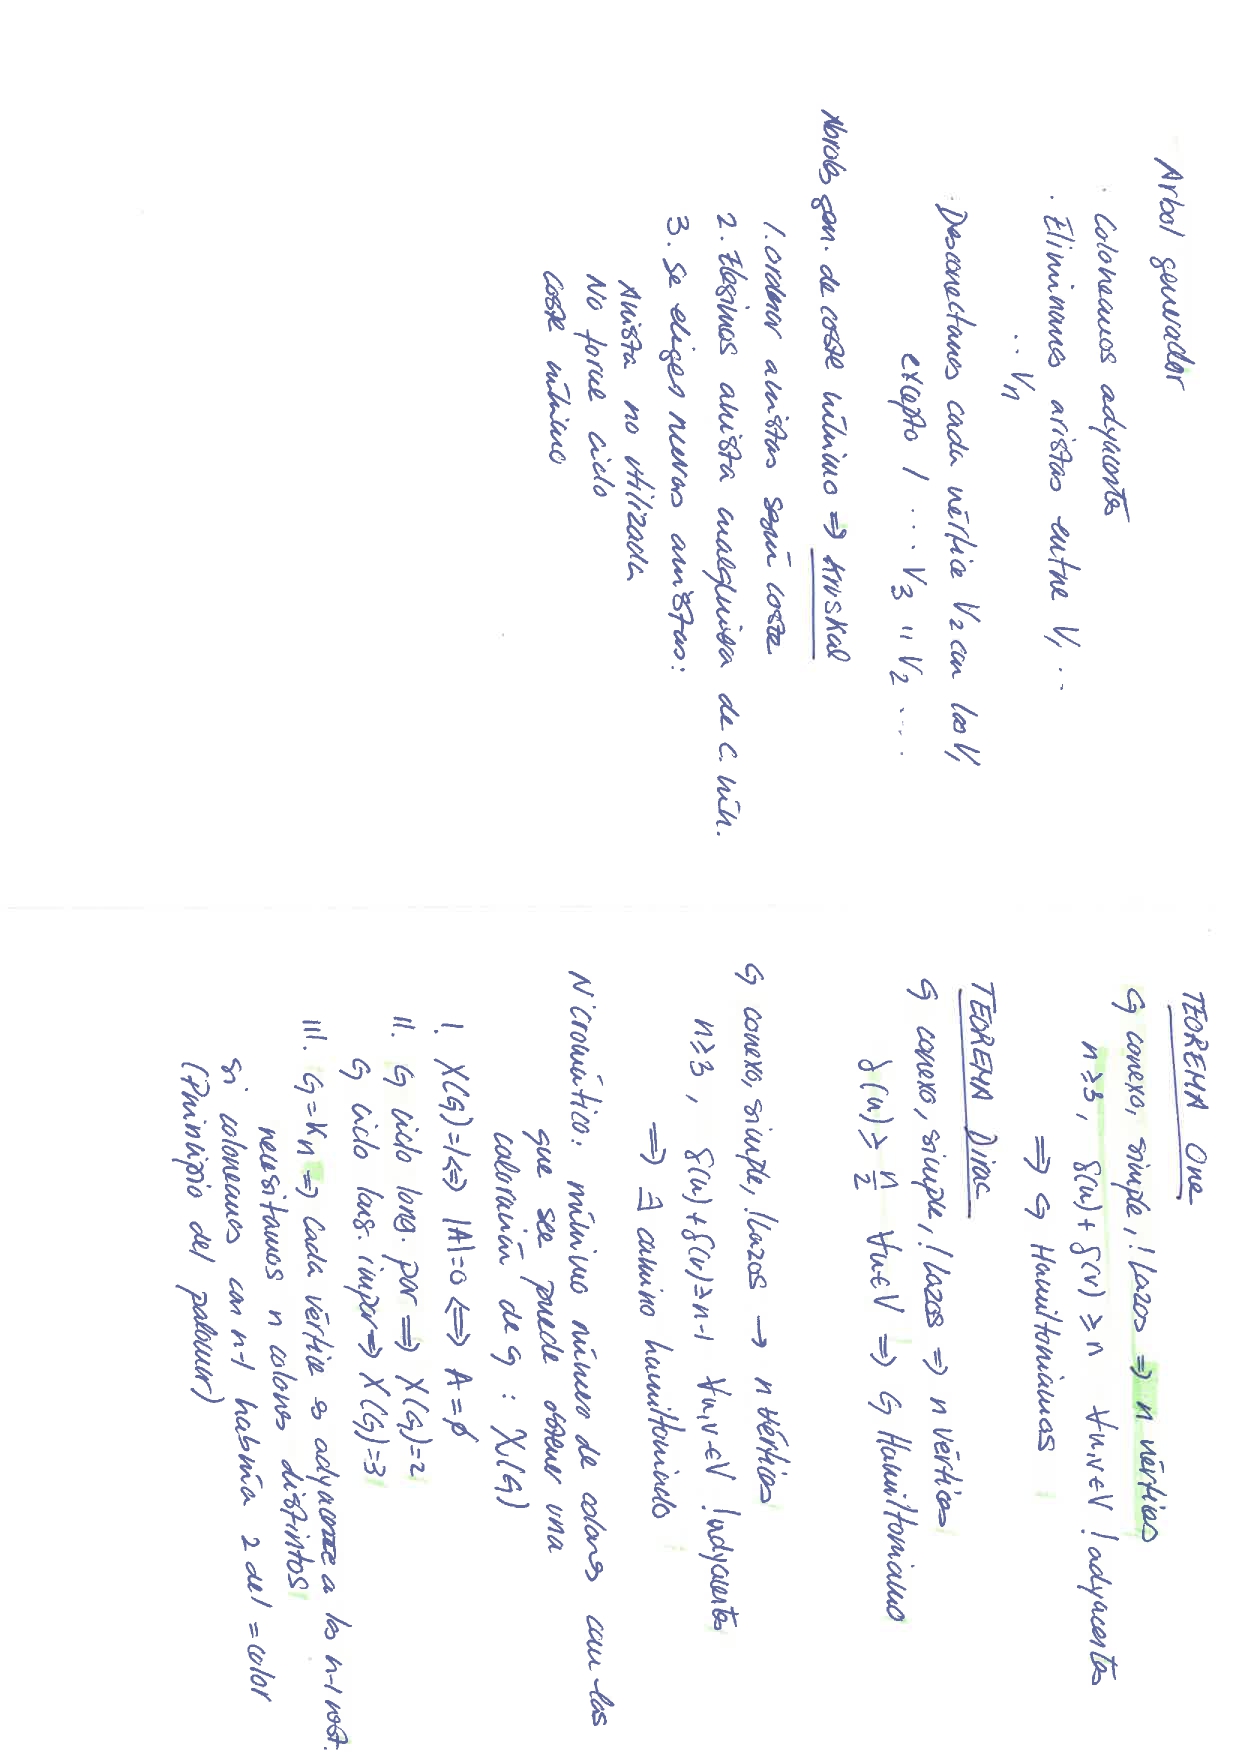 Arbol generador
· Coloreamos adyacentes
· Eliminamos aristas entre V₁ ··
·· Vn
· Desconectamos cada vértice V₂ con los V₁
excepto 1 ···· V₃ " V₂ ····
Abroles gen. de coste mínimo ⇒ Kruskal
1. ordenar aristas según coste
2. Elegimos arista cualquiera de c. mín.
3. Se eliges nuevas aristas:
Arista no utilizada
No forme ciclo
Coste mínimo
TEOREMA Ore
G conexo, simple, !Lazos ⇒ n vértices
n≥3, δ(u)+δ(v)≥n ∀u,v∈V !adyacentes
⇒ G Hamiltonianas
TEOREMA Dirac
G conexo, simple, !Lazos ⇒ n vértices
δ(u)≥ n/2 ∀u∈V ⇒ G Hamiltoniano
G conexo, simple, !Lazos → n vértices
n≥3, δ(u)+δ(v)≥n-1 ∀u,v∈V !adyacentes
⇒ ∃ camino hamiltoniando
N cromático: mínimo número de colores con los
que see puede obtener una
coloración de G : X(G)
I. X(G)=1⇔ |A|=0 ⇔ A=∅
II. G ciclo long. par ⇒ X(G)=2
G ciclo long. impar⇒ X(G)=3
III. G=Kn ⇒ Cada vértice es adyacente a los n-1 rest.
necesitamos n colores distintos
Si coloreamos con n-1 habría 2 del = color
(Principio del palomar)